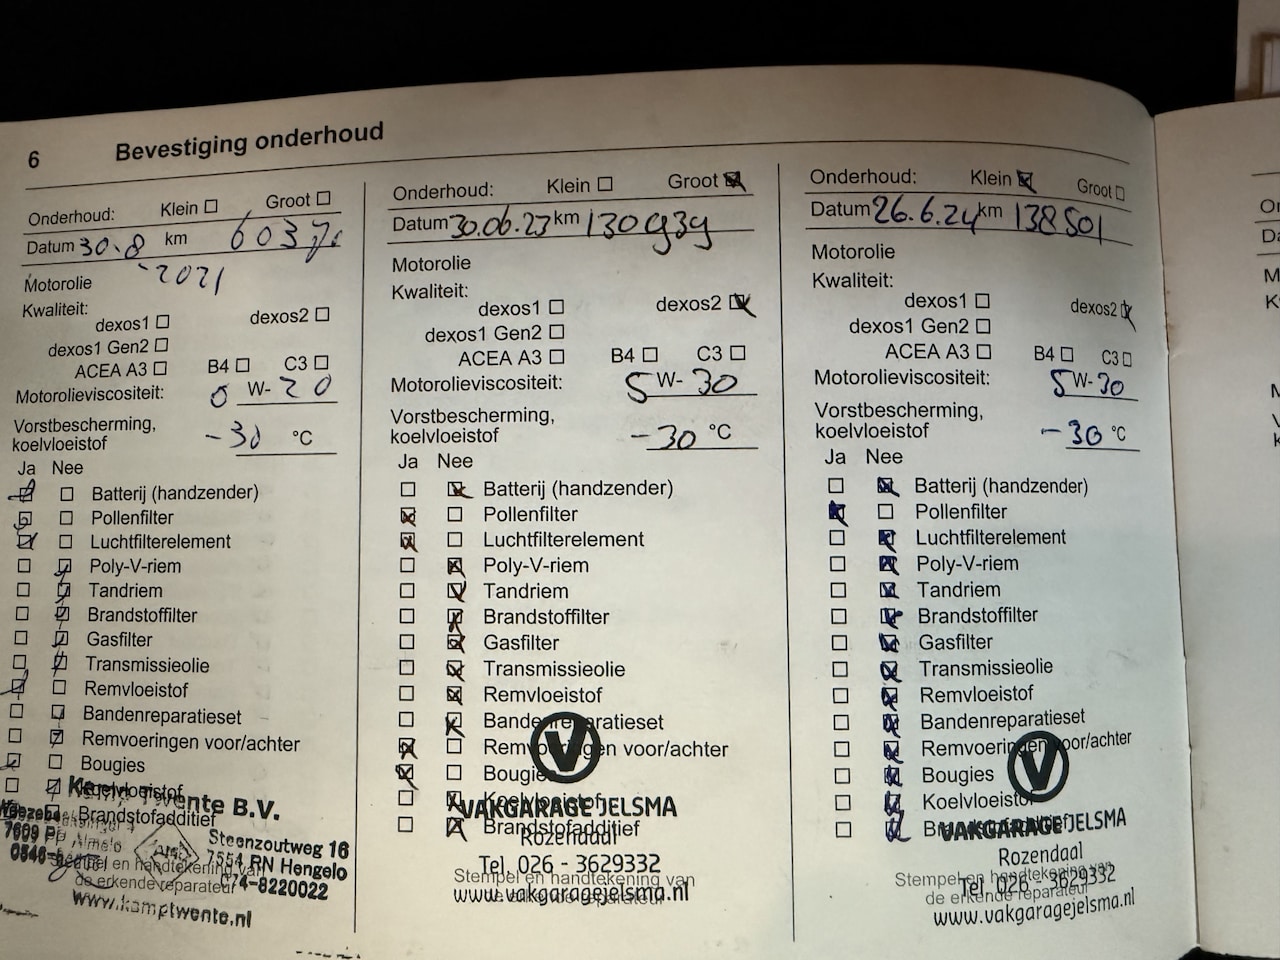 6 Bevestiging onderhoud
Onderhoud: Klein ☐ Groot ☐
Datum 30.8 km
2021
Motorolie
Kwaliteit:
dexos1 ☐ dexos2 ☐
dexos1 Gen2 ☐
ACEA A3 ☐ B4 ☐ C3 ☐
Motorolieviscositeit: 0 W- 20
Vorstbescherming,
koelvloeistof -30 °C
Ja Nee
☒ ☐ Batterij (handzender)
☒ ☐ Pollenfilter
☒ ☐ Luchtfilterelement
☐ ☒ Poly-V-riem
☐ ☒ Tandriem
☐ ☒ Brandstoffilter
☐ ☒ Gasfilter
☐ ☒ Transmissieolie
☒ ☐ Remvloeistof
☐ ☒ Bandenreparatieset
☐ ☒ Remvoeringen voor/achter
☒ ☐ Bougies
☐ ☒ Koelvloeistof
Brandstofadditief
Twente B.V.
Steenzoutweg 16
7554 RN Hengelo
074-8220022
Almelo
Stempel en handtekening van
de erkende reparateur
www.kamptwente.nl
Onderhoud: Klein ☐ Groot ☒
Datum 30.06.23 km 130939
Motorolie
Kwaliteit:
dexos1 ☐ dexos2 ☒
dexos1 Gen2 ☐
ACEA A3 ☐ B4 ☐ C3 ☐
Motorolieviscositeit: 5 W- 30
Vorstbescherming,
koelvloeistof -30 °C
Ja Nee
☐ ☒ Batterij (handzender)
☒ ☐ Pollenfilter
☒ ☐ Luchtfilterelement
☐ ☒ Poly-V-riem
☐ ☒ Tandriem
☐ ☒ Brandstoffilter
☐ ☒ Gasfilter
☐ ☒ Transmissieolie
☐ ☒ Remvloeistof
☐ ☒ Bandenreparatieset
☒ ☐ Remvoeringen voor/achter
☒ ☐ Bougies
☐ ☒ Koelvloeistof
☐ ☒ Brandstofadditief
V
VAKGARAGE JELSMA
Rozendaal
Tel. 026 - 3629332
Stempel en handtekening van
de erkende reparateur
www.vakgaragejelsma.nl
Onderhoud: Klein ☒ Groot ☐
Datum 26.6.24 km 138501
Motorolie
Kwaliteit:
dexos1 ☐ dexos2 ☒
dexos1 Gen2 ☐
ACEA A3 ☐ B4 ☐ C3 ☐
Motorolieviscositeit: 5 W- 30
Vorstbescherming,
koelvloeistof -30 °C
Ja Nee
☐ ☒ Batterij (handzender)
☒ ☐ Pollenfilter
☐ ☒ Luchtfilterelement
☐ ☒ Poly-V-riem
☐ ☒ Tandriem
☐ ☒ Brandstoffilter
☐ ☒ Gasfilter
☐ ☒ Transmissieolie
☐ ☒ Remvloeistof
☐ ☒ Bandenreparatieset
☐ ☒ Remvoeringen voor/achter
☐ ☒ Bougies
☐ ☒ Koelvloeistof
☐ ☒ Brandstofadditief
V
VAKGARAGE JELSMA
Rozendaal
Stempel en handtekening van
Tel. 026 - 3629332
de erkende reparateur
www.vakgaragejelsma.nl